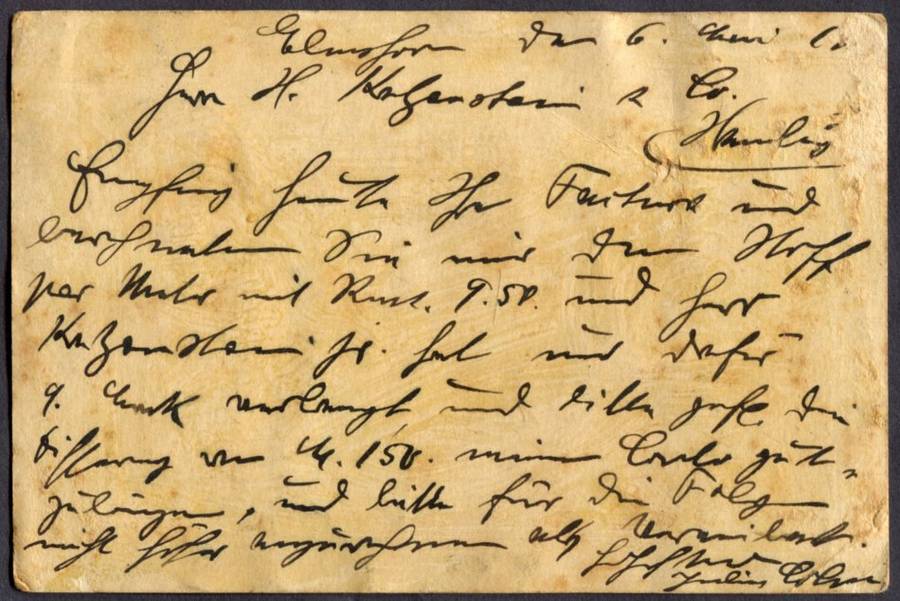 Elmshorn den 6. Mai
Herrn H. Katzenstein & Co.
Hamburg
Empfing heute Ihre Factura und
berechneten Sie mir den Stoff
per Meter mit Rmk. 9.50. und Herr
Katzenstein jr. hat mir dafür
9. Mark verlangt und bitte gefl. die
Differenz von M. 1,50. meinem Conto gut-
zubringen, und bitte für die Folge
nicht höher anzurechnen als vereinbart.
Hochachtend
Julius Cohen